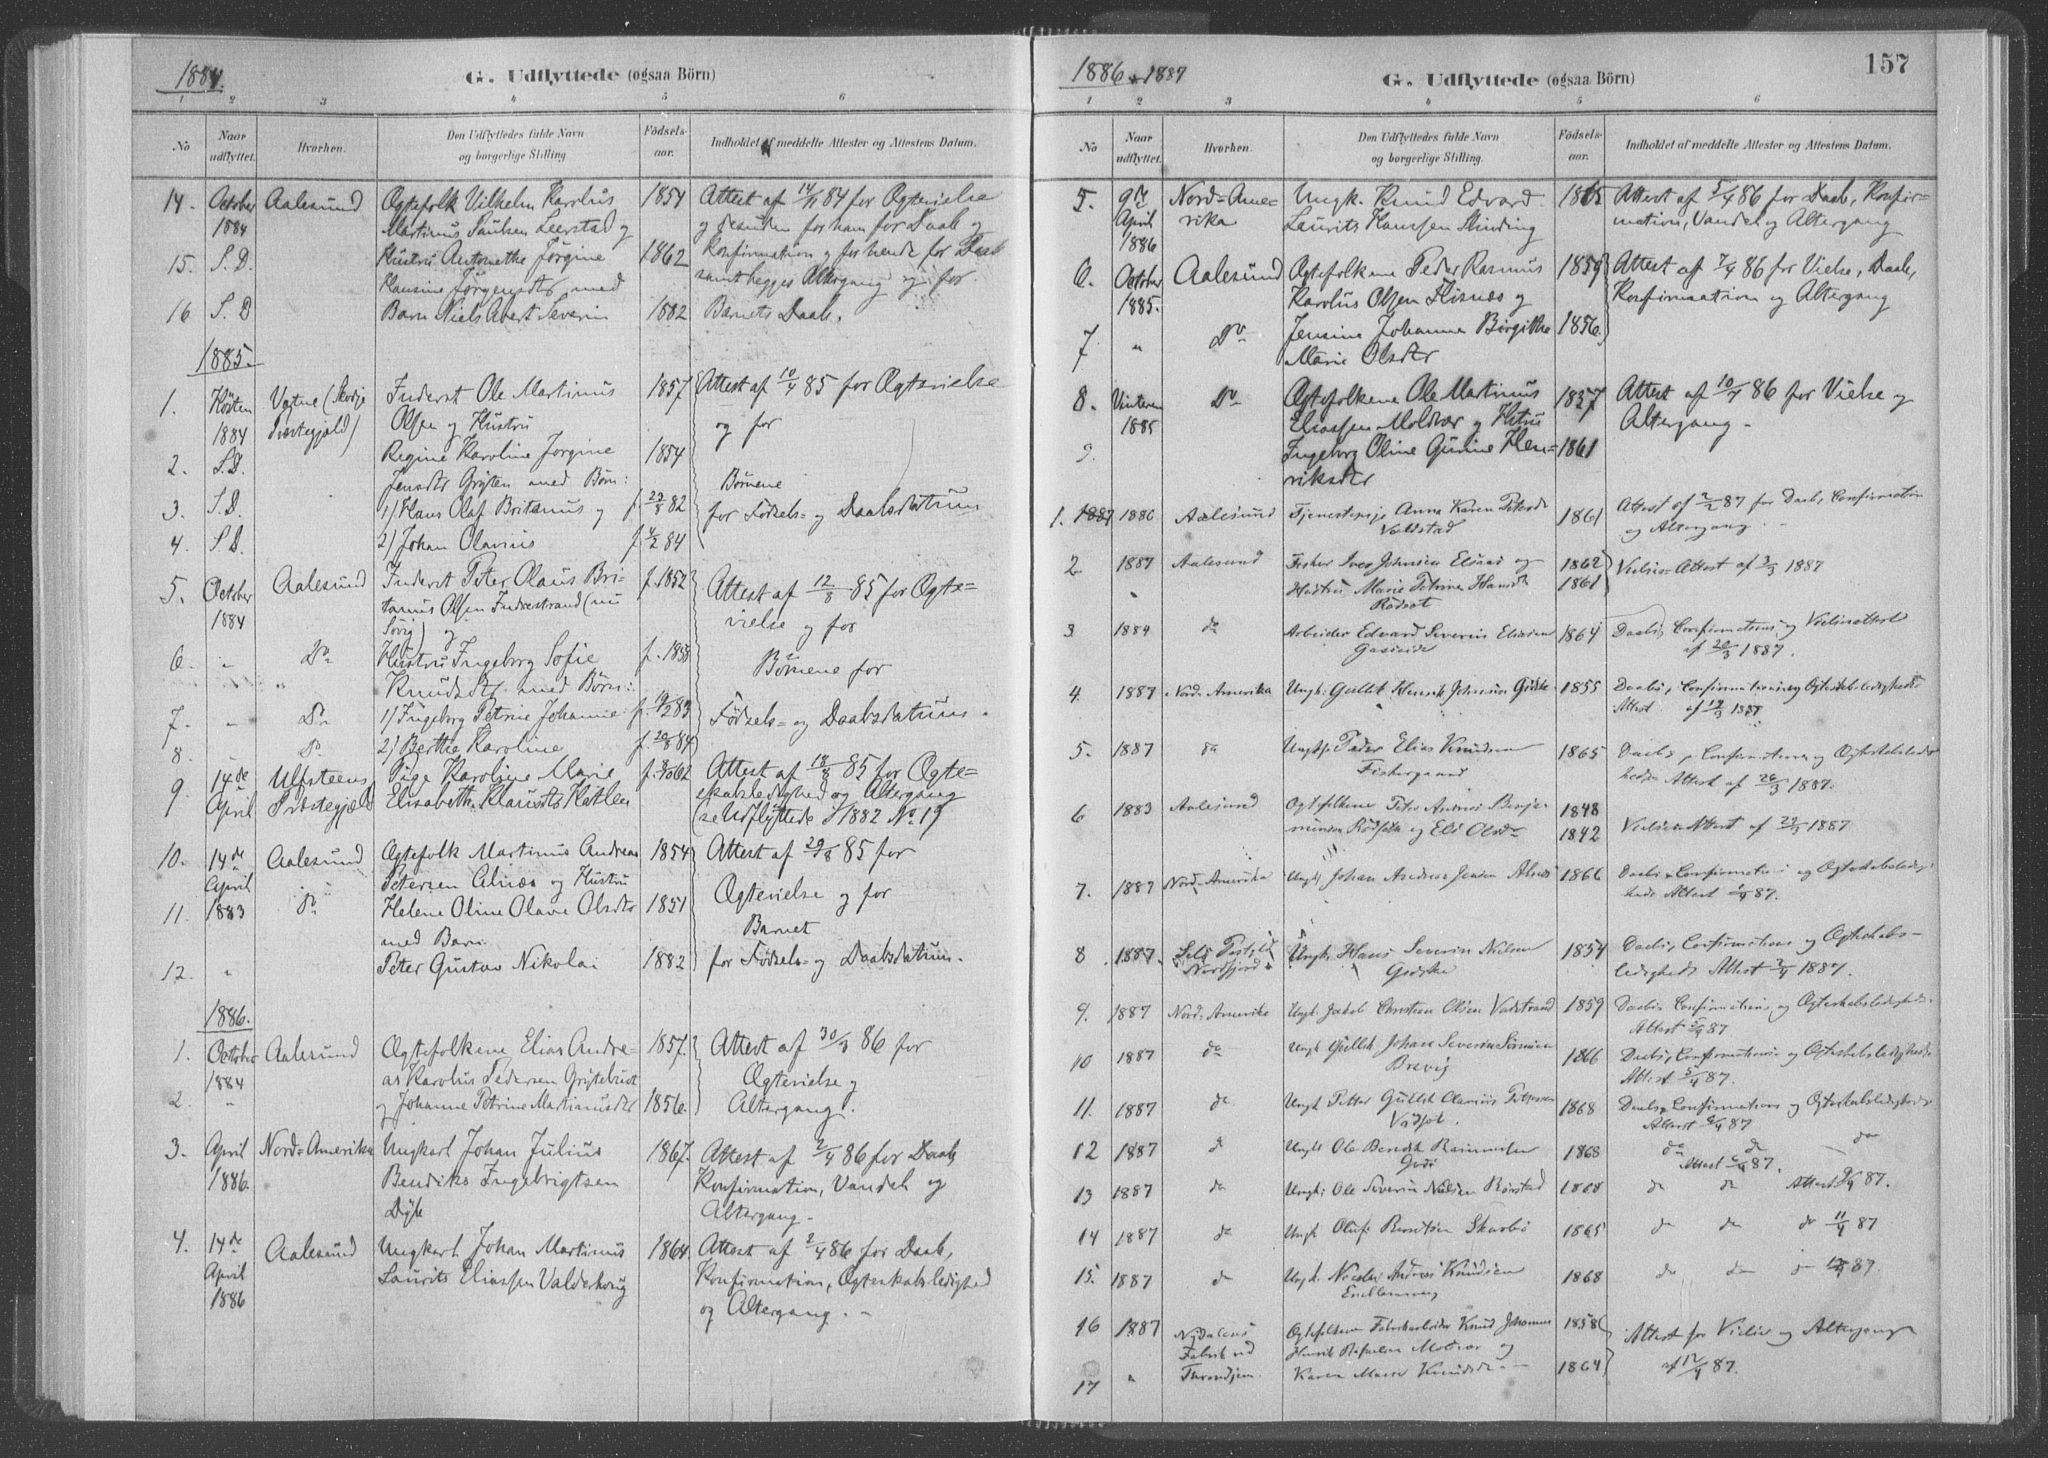 1884.
G. Udflyttede (ogsaa Börn)
1 2 3 4 5 6
No
Naar udflyttet.
Hvorhen.
Den Udflyttedes fulde Navn og borgerlige Stilling
Födsels-aar.
Indholdet af meddelte Attester og Attestens Datum.
14. October Aalesund Ægtefolk Vilhelm Karolus 1854 Attest af 14/11 84 for Ægtevielse
1884 Martinus Paulsen Leerstad og og desuden for ham for Daab og
15. S. D. Hustru Antonethe Jörgine 1862 Konfirmation og for hende for Daab
Hansine Jörgensdtr med samt begges Altergang og for
16 S. D Barn Niels Albert Severin 1882 Barnets Daab.
1885.
1. Hösten Vatne (Skodje Inderst Ole Martinus 1857 Attest af 10/4 85 for Ægtevielse
1884 Præstegjæld) Olsen og Hustru og for
2. S.D. Regine Karoline Jörgine 1854
Jensdtr Gryten med Börn: Börnene
3. S.D. 1) Hans Olaf Britanus og f. 23/8 82 for Födsels- og Daabsdatum
4. S.D. 2) Johan Olavius f. 4/2 84
5. October Aalesund Inderst Peter Olaus Bri- f. 1852 Attest af 12/8 85 for Ægte-
1884 tanus Olsen Indrestrand (nu vielse og for
Sövig) og
6. " Do Hustru Ingeborg Sofie f. 1858 Börnene for
Knudsdtr med Börn:
7. " Do 1) Ingeborg Petrine Johanne f. 19/2 83 Födsels- og Daabsdatum.
8. " Do 2) Berthe Karoline f. 20/8 84
9. 14de Ulfsteens Pige Karoline Marie f. 8/10 62 Attest af 18/8 85 for Ægte-
April Præstegjæld Elisabeth Klausdtr skabsledighed og Altergang
(se Udflyttede i 1882 No 19
10. 14de Aalesund Ægtefolk Martinus Andreas 1854 Attest af 29/8 85 for
April Petersen Alnæs og Hustru
11. 1883 Do Helene Oline Olave Olsdtr 1851 Ægtevielse og for
med Barn Barnet
12. " Peter Gustav Nikolai 1882 for Födsels- og Daabsdatum.
1886.
1. October Aalesund Ægtefolkene Elias Andre- 1857. Attest af 30/3 86 for
1884 as Karolus Pedersen Ægtevielse og
2. " og Johanne Petrine Martinusdtr 1856 Altergang.
3. April Nord-Amerika Ungkarl Johan Julius 1867. Attest af 2/4 86 for Daab,
1886. Bendiks Ingebrigtsen Konfirmation, Vandel og
Dyb Altergang.
4. 14de Aalesund Ungkarl Johan Martinus 1864 Attest af 2/4 86 for Daab,
April Laurits Eliassen Valderhoug Konfirmation, Ægteskabsledighed
1886 og Altergang.
1886 1887
G. Udflyttede (ogsaa Börn)
157
1 2 3 4 5 6
No
Naar udflyttet.
Hvorhen.
Den Udflyttedes fulde Navn og borgerlige Stilling
Födsels-aar.
Indholdet af meddelte Attester og Attestens Datum.
5. 9de Nord-Ame- Ungk. Knud Edvard 1865 Attest af 5/4 86 for Daab, Konfir-
April rika Laurits Hanssen Skinding mation, Vandel og Altergang
1886
6. October Aalesund Ægtefolkene Peder Rasmus 1859 Attest af 7/4 86 for Vielse, Daab,
1885. Karolus Olsen og Konfirmation og Altergang
7 " Do Jensine Johanne Birgithe 1856
Marie Olsdtr
8. Vinteren Do Ægtefolkene Ole Martinus 1857 Attest af 10/4 86 for Vielse og
1885 Eliassen Moldvær og Hstru Altergang
9. Ingeborg Oline Gurine Hen- 1861
riksdtr
1. 1887 1886 Aalesund Tjenestepige Anna Karen Petersdtr 1861 Attest af 2/2 87 for Daab, Confirmation
Valdstad og Altergang.
2 1887 Aalesund Fisker Iver Johnsen og 1862 Vielses-Attest af 3/3 1887
" Hustru Marie Petrine Hansdtr 1861
Rödset
3 1884 do Arbeider Edvard Severin Eliasen 1864 Daabs, Confirmations og Vielsesattest
af 20/3 1887.
4. 1887 Nord-Amerika Ungk: Gullik Henrik Johnsen Godske 1855 Daabs, Confirmations og Ægteskabsledigheds-
Attest af 19/3 1887
5. 1887 do Ungk. Peder Elias Knudsen 1865 Daabs, Confirmations og Ægteskabsledig-
Fiskergaard heds Attest af 26/3 1887.
6 1883 Aalesund Ægtefolkene Peter Andreas Benja- 1848
minsen og Eli Olsdtr 1842 Vielses Attest af 29/3 1887
7. 1887 Nord-Amerika Ungk. Johan Andreas Jensen Alnæs 1866 Daabs, Confirmations og Ægteskabsledig-
heds Attest 1/4 87.
8. 1887. Nordfjord Ungk. Hans Severin Nielsen 1854 Daabs, Confirmations og Ægteskabs-
Godske ledigheds Attest 2/4 1887.
9. 1887 Nord-Amerika Ungk. Jakob Christian Olsen Valstrand 1859 Daabs, Confirmations, og Ægteskabsledigheds-
Attest 5/4 87
10 1887 do Ungk. Gullik Johan Severin 1866 Daabs, Confirmations og Ægteskabsledigheds-
Brevig Attest 5/4 87.
11. 1887 do Ungk. Petter Gullik Olavius Petersen 1868 Daabs, Confirmations og Ægteskabsledigheds-
Attest 6/4 87
12 1887 do Ungk Ole Bendik Rasmussen 1868 do do do
Godö Attest 6/4 87.
13 1887 do Ungk: Ole Severin Nielsen Rörstad 1868 do do Attest 9/4 87.
14 1887 do Ungk Oluf Berntsen Skarbö 1865 do do do 11/4 87
15. 1887 do Ungk. Nicolai Andreas Knudsen 1868 do do do 87.
Emblemsvaag
16 1887 Nydalens Ægtefolkene Fabrikarbeider Knud Johannes 1858 Attest for Vielse og Altergang
Fabrik ved Henrik Moldvær og af 12/4 87.
17 " Throndhjem. Karen Marie Knudsdtr 1864